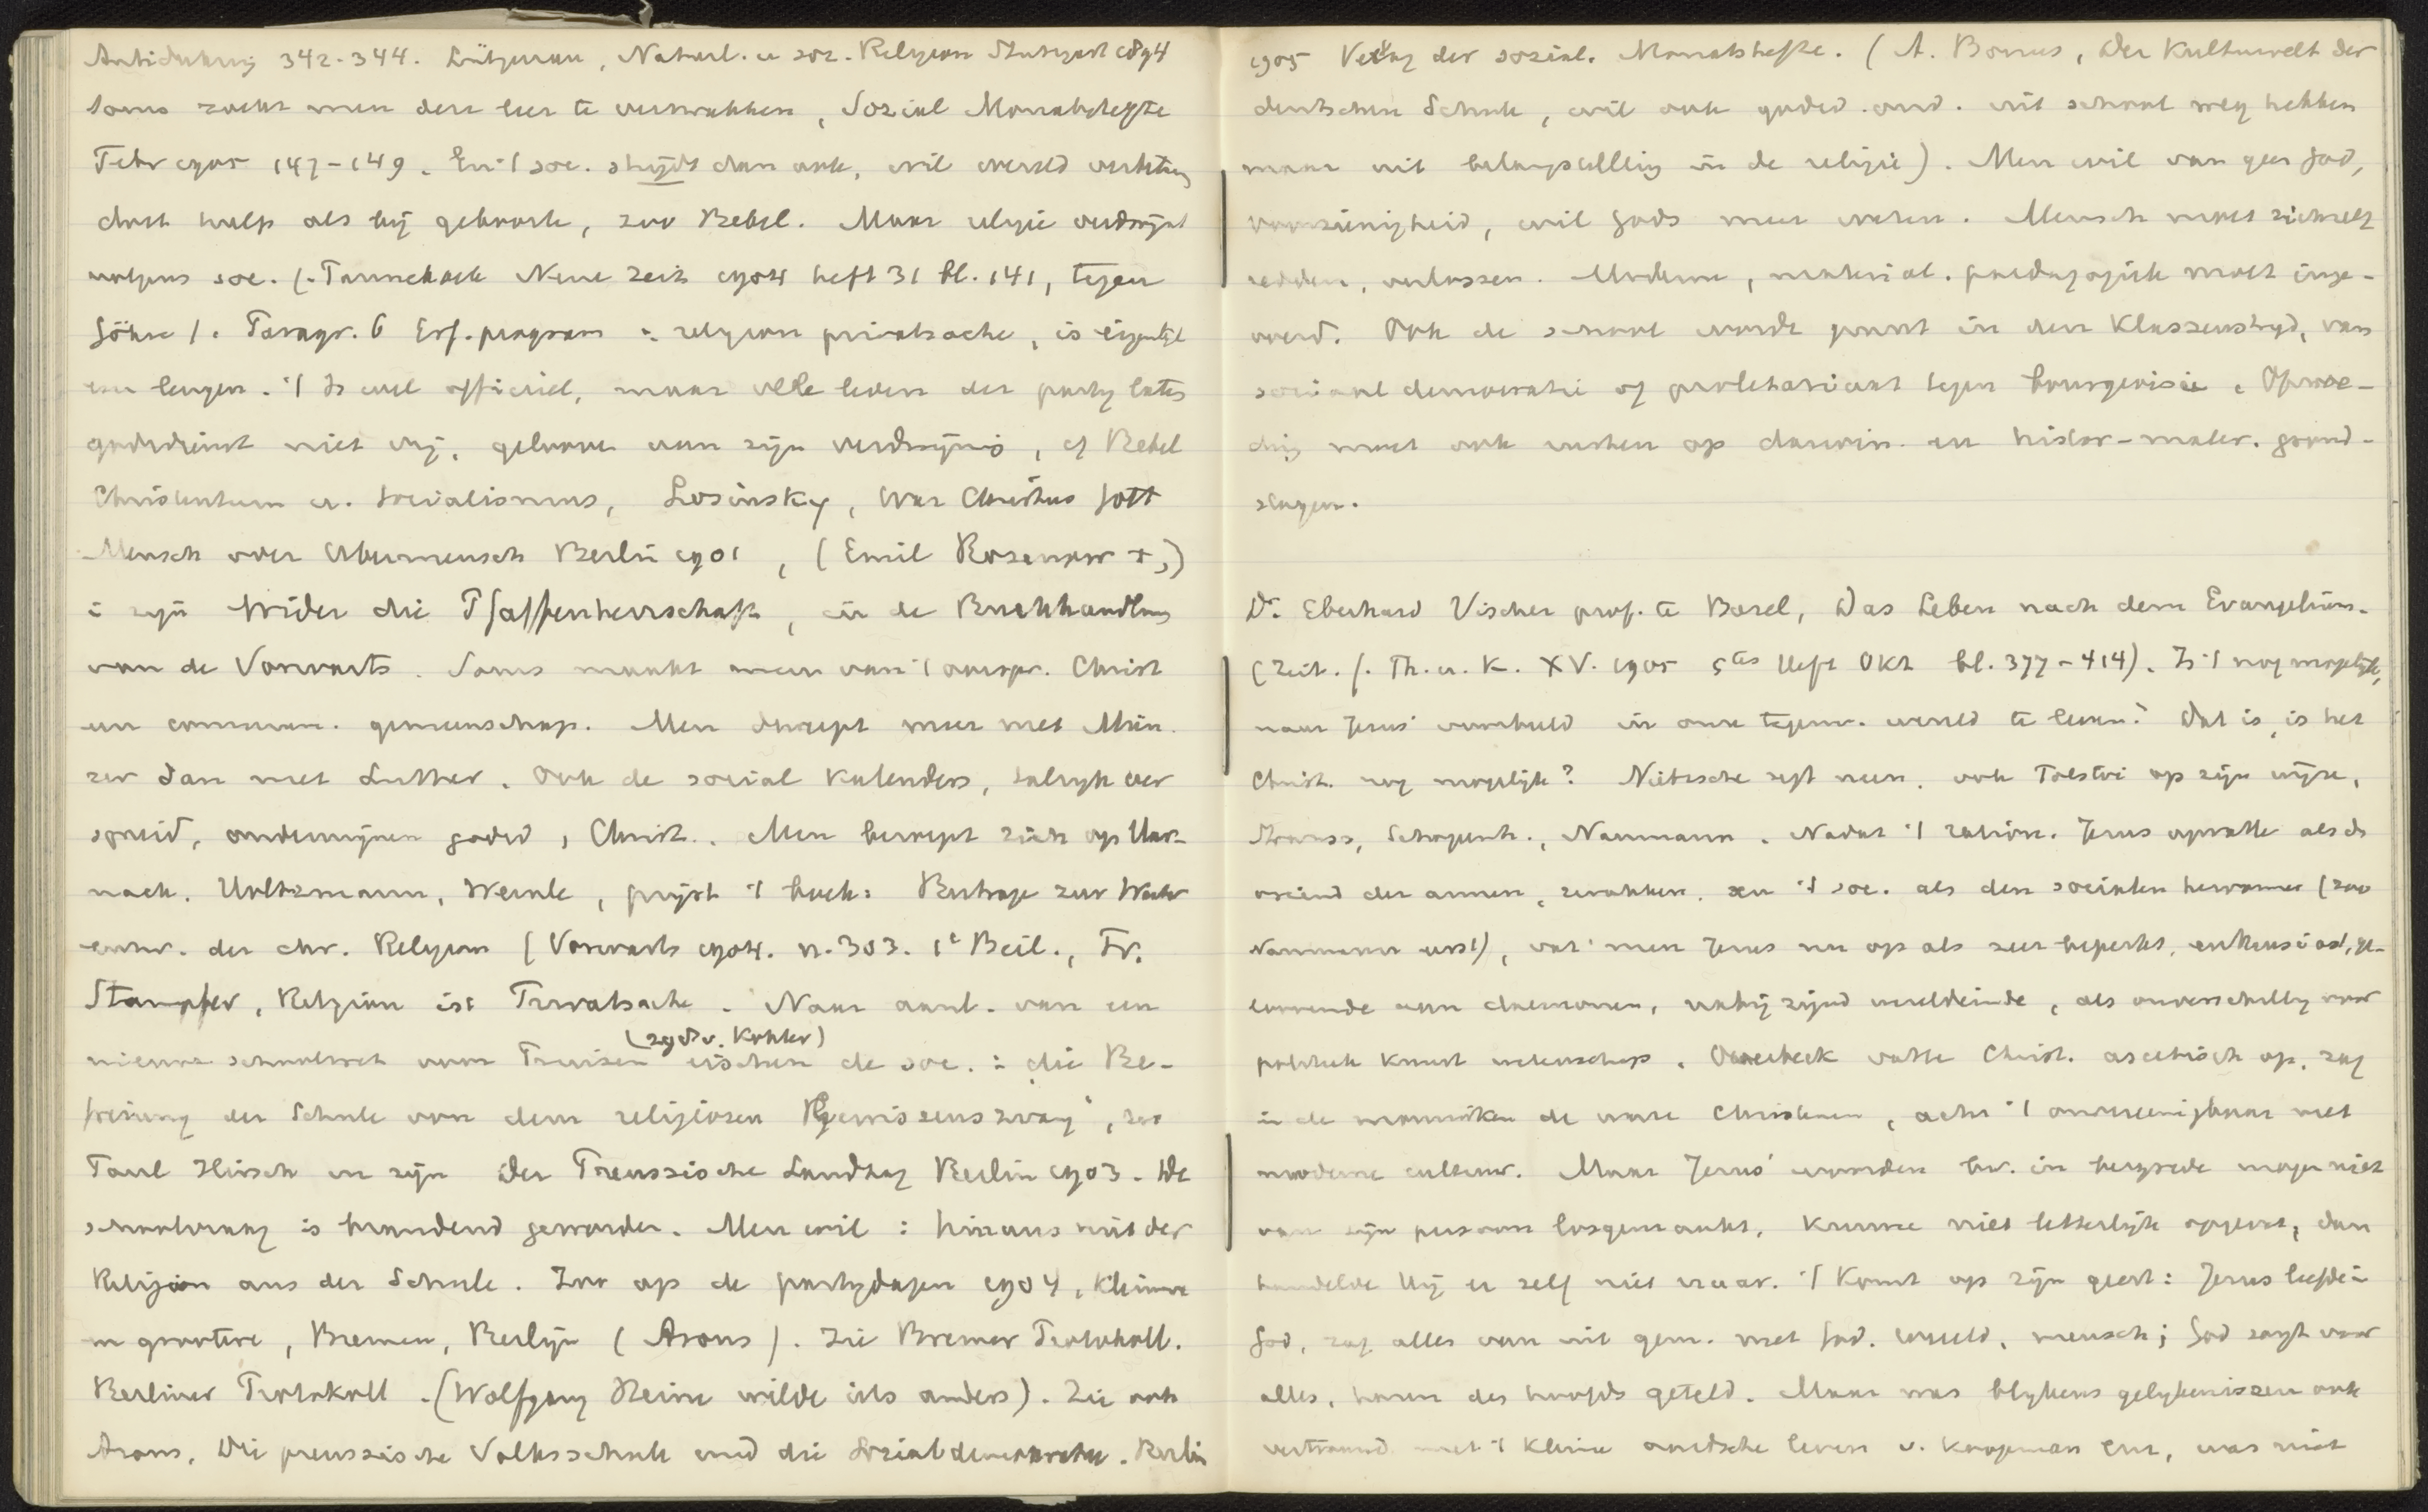 Antidühring 342-344. Lütgenau, Naturl. u soz. Religion Stuttgart 1894
Soms zoekt men den leer te verzwakken, Sozial Monatshefte
Febr 1905 147-149. En 't soc. strijdt dan ook, wil wereld
doet hulp als bij geboorte, zoo Bebel. Maar religie verdwijnt
volgens soc. (Pannekoek Neue Zeit 1904 heft 31 bl. 141, tegen
Göhre). Paragr. 6 Erf. program: religion privatsache, is eigenlijk
een leugen. 't Is wel officieel, maar vele leden der partij laten
godsdienst niet vrij, gelooven aan zijn verdwijning, cf Bebel
Christentum u. Socialismus, Losinsky, War Christus Gott
Mensch oder Ubermensch Berlin 1901, (Emil Rosenow +,)
in zijn Wider die Pfaffenherrschaft, in de Buchhandlung
van de Vorwarts. Soms maakt men van 't oorspr. Christ
een commun. gemeenschap. Men dweept meer met Mün
zer dan met Luther. Ook de social Kalenders, talryk ver
spreid, ondermijnen godsd, Christ.. Men beroept zich op Har-
nack. Holtzmann, Wernle, prijst 't boek: Beitrage zur Weiter
entw. der chr. Religion (Vorwarts 1904. n. 303. 1e Beil., Fr.
Stampfer, Religion ist Privatsache. Naar aanl. van een
(zgn v. Kohler)
nieuwe schoolwet voor Pruisen eischen de soc.: "die Be-
freiung der Schule von dem religiosen Gewissenszwang", zoo
Paul Hirsch in zijn Der Preussische Landtag Berlin 1903. De
schoolvraag is brandend geworden. Men wil: hinaus mit der
Religion aus der Schule. Zoo op de partijdagen 1904, kleinere
en grootere, Bremen, Berlijn (Arons). Zie Bremer Protokoll.
Berliner Protokoll. (Wolfgang Heine wilde iets anders). Zie ook
Arons, Die preussische Volksschule und die Sozialdemokratie. Berlin
1905 Verlag der sozial. Monatshefte. (A. Bonus, Der Kulturwelt der
deutschen Schule, wil ook godsd. ond. uit school weg hebben
maar uit belangstelling in de religie). Men wil van geen God,
voorzienigheid, wil Gods meer weten. Mensch moet zichzelf
redden, verlossen. Moderne, material. paedagogiek moet inge-
voerd. Ook de school worde gezet in den Klassenstrijd, van
sociaal democratie of proletariaat tegen bourgeoisie. Opvoe-
ding moet ook rusten op darwin. en histor-mater. grond-
slagen.
Dr. Eberhard Vischer prof. te Basel, Das Leben nach dem Evangelium.
(Zeit. f. Th. u. K. XV. 1905 5tes Heft Okt bl. 377-414). Is 't nog mogelijk,
naar Jezus' voorbeeld in onze tegenw. wereld te leven? Dat is, is het
Christ. nog mogelijk? Nietzsche zegt neen, ook Tolstoi op zijn wijze,
Strauss, Schopenh., Naumann. Nadat 't ration. Jezus opvatte als de
vriend der armen, zwakken, en 't soc. als den socialen hervormer (zoo
Naumann eerst), vat men Jezus nu op als zeer beperkt, enthusiast, ge-
loovende aan daemonen, nabij zijnd wereldeinde, als onverschillig voor
politiek kunst wetenschap. Overbeck vatte Christ. ascetisch op, zag
in de monniken de ware Christenen, acht 't onvereenigbaar met
moderne cultuur. Maar Jezus' woorden bv. in bergrede mogen niet
van zijn persoon losgemaakt, kunnen niet letterlijk opgevat, dan
handelde Hij er zelf niet naar. 't Komt op zijn geest: Jezus leefde in
God, zag alles van uit gem. met God, wereld, mensch; God zorgt voor
alles, haren des hoofds geteld. Maar was blijkens gelijkenissen ook
vertrouwd met 't kleine aardsche leven v. koopman enz, was niet